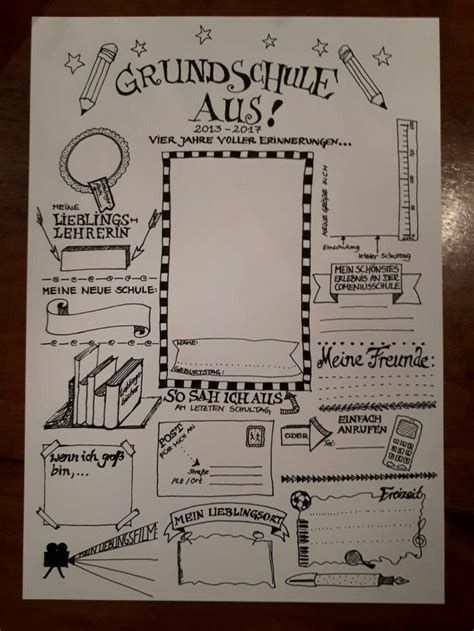 GRUNDSCHULE
AUS!
2013-2017
VIER JAHRE VOLLER ERINNERUNGEN...
MEINE
LIEBLINGS-
LEHRERIN
MEINE NEUE SCHULE:
NAME:
GEBURTSTAG:
SO SAH ICH AUS
AM LETZTEN SCHULTAG
MEINE GRÖßE
Einschulung
letzter Schultag
MEIN SCHÖNSTES
ERLEBNIS AN DER
COMENIUSSCHULE
Meine Freunde:
Wenn ich groß
bin,...
POST
FÜR MICH AN
Straße
PLZ/Ort
ODER
EINFACH
ANRUFEN
Tel.
MEIN LIEBLINGSFILM:
MEIN LIEBLINGSORT
Freizeit